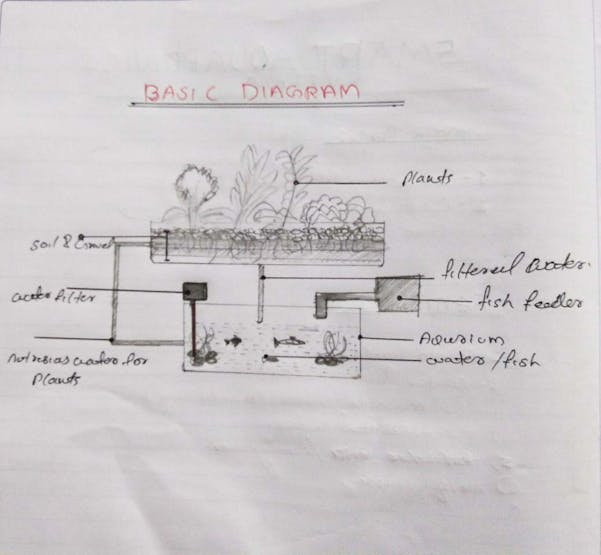 BASIC DIAGRAM
Plants
Soil & Gravel
filtered water.
water filter
fish feeder
Aqurium
water/fish
nutrisias water for
Plants